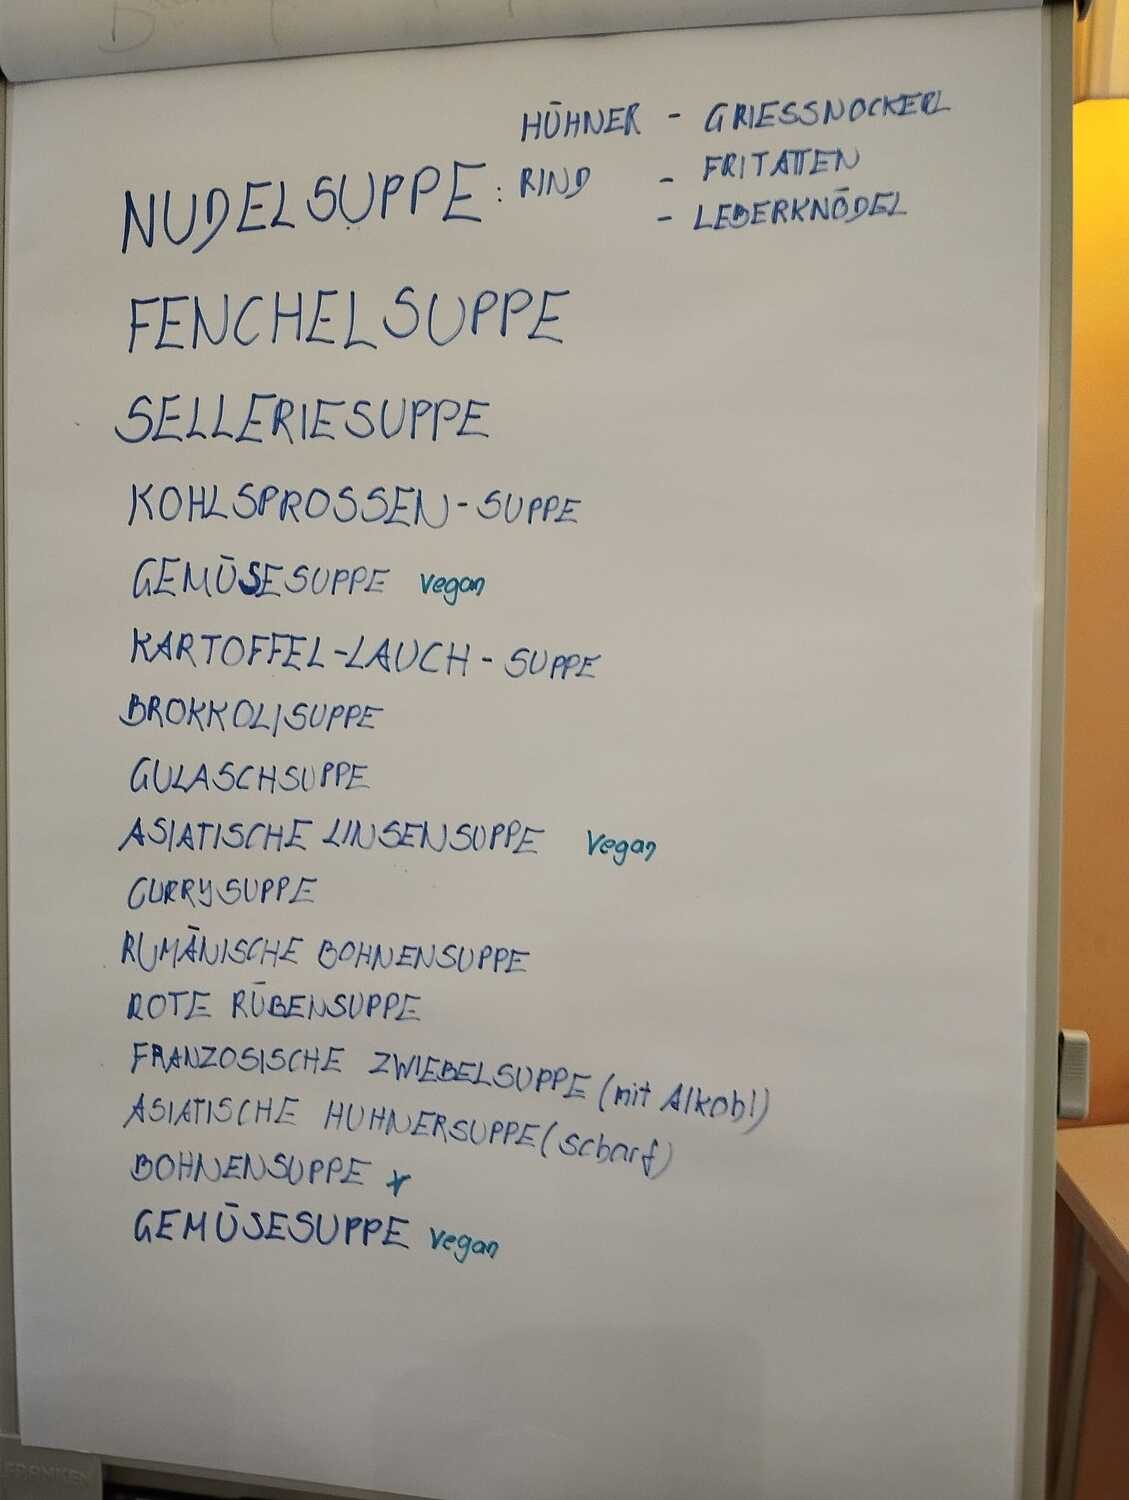 HÜHNER - GRIESSNOCKERL
NUDELSUPPE: RIND - FRITATTEN
- LEBERKNÖDEL
FENCHELSUPPE
SELLERIESUPPE
KOHLSPROSSEN-SUPPE
GEMÜSESUPPE vegan
KARTOFFEL-LAUCH-SUPPE
BROKKOLISUPPE
GULASCHSUPPE
ASIATISCHE LINSENSUPPE vegan
CURRYSUPPE
RUMÄNISCHE BOHNENSUPPE
ROTE RÜBENSUPPE
FRANZOSISCHE ZWIEBELSUPPE (mit Alkohl)
ASIATISCHE HUHNERSUPPE (scharf)
BOHNENSUPPE *
GEMÜSESUPPE vegan
FRANKEN